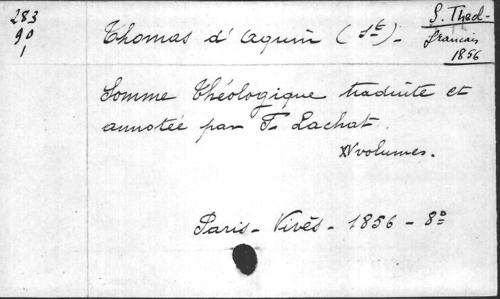 283
90
1
Thomas d'Aquin (St)-
S. Thad-
français
1856
Somme théologique traduite et
annotée par F. Lachat.
XV volumes.
Paris - Vivès - 1856 - 8°